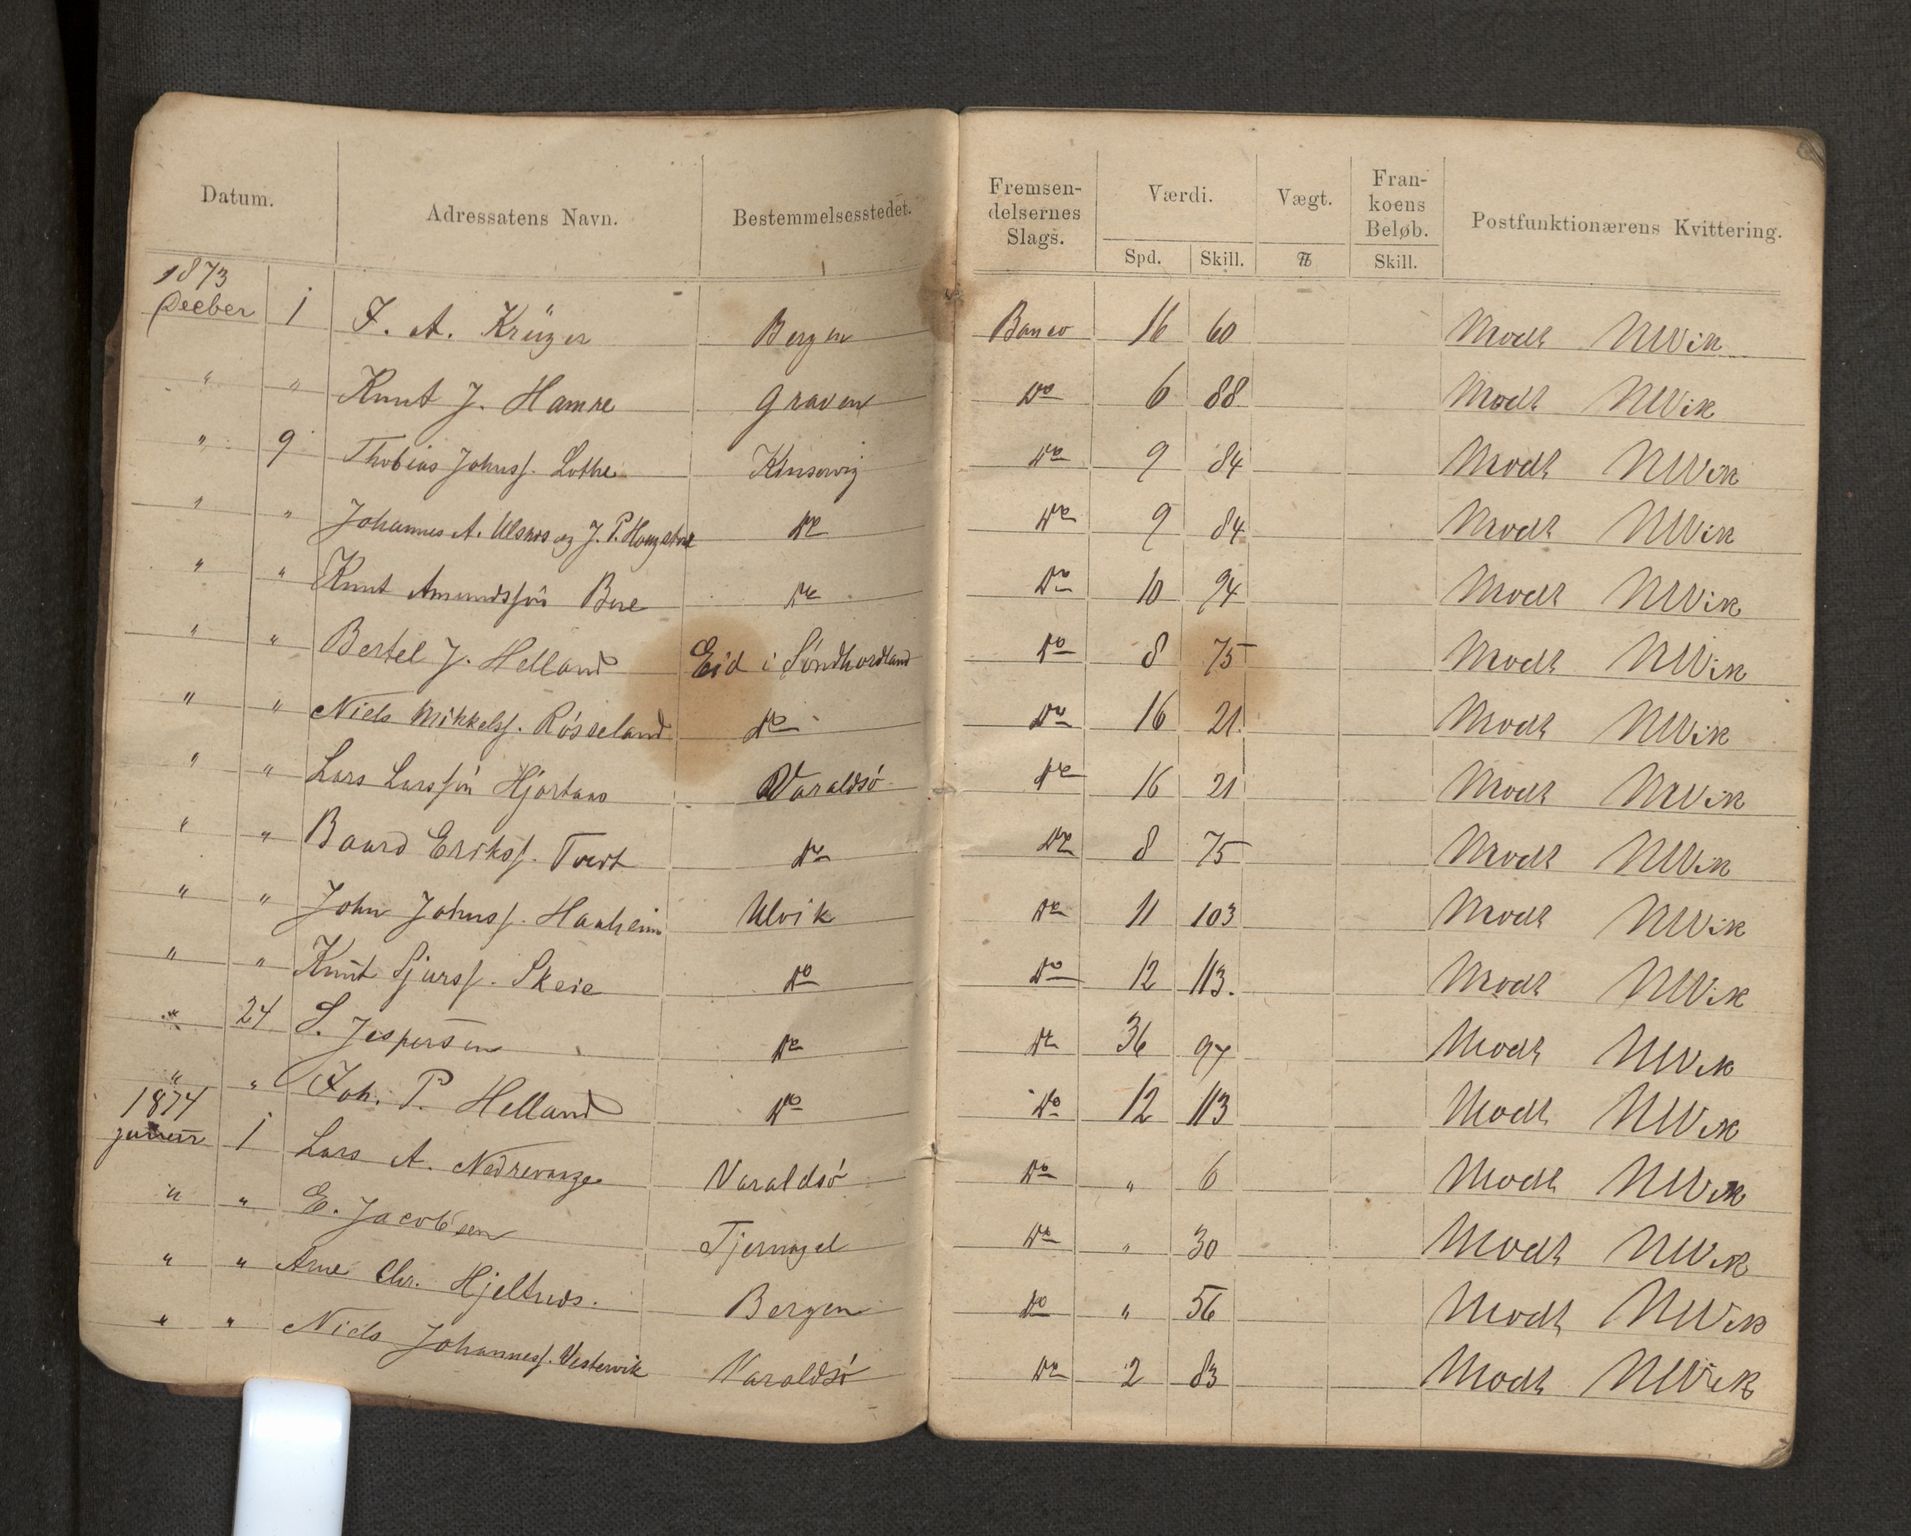 Datum. Adressatens Navn. Bestemmelsesstedet. Fremsen-delsernes Slags. Værdi. Vægt. Fran-koens Beløb. Postfunktionærens Kvittering.
Spd. Skill. ℔ Skill.
1873
Deeber 1 F. A. Krüger Bergen Banco 16 60 Modt NWik
" " Knut J. Hamre Graven Do 6 88 Modt NWik
" 9 Thobias Johnsf. Lothe Kinservig Do 9 84 Modt NWik
" " Johannes A. Ulsnes og J. P. Do Do 9 84 Modt NWik
" " Knut Amundssøn Bue Do Do 10 94 Modt NWik
" " Bertel J. Helland Eid i Søndhordland Do 8 75 Modt NWik
" " Niels Mikkelsf. Røsseland Do Do 16 21 Modt NWik
" " Lars Larssøn Hjortaas Varaldsø Do 16 21 Modt NWik
" " Baard Eriksf. Tveit Do Do 8 75 Modt NWik
" " John Johnsf. Haaheim Ulvik Do 11 103 Modt NWik
" " Knut Sjursf. Skeie Do Do 12 113. Modt NWik
" 24 S. Jespersen Do Do 36 97 Modt NWik
" " Joh. P. Helland Do Do 12 113 Modt NWik
1874
januar 1 Lars A. Nedrevaage Varaldsø Do " 6 Modt NWik
" " E. Jacobsen Tjernagel Do " 30 Modt NWik
" " Arne Chr. Hjeltnes. Bergen Do " 56 Modt NWik
" " Niels Johannesf. Vestervik Varaldsø Do 2 83 Modt NWik